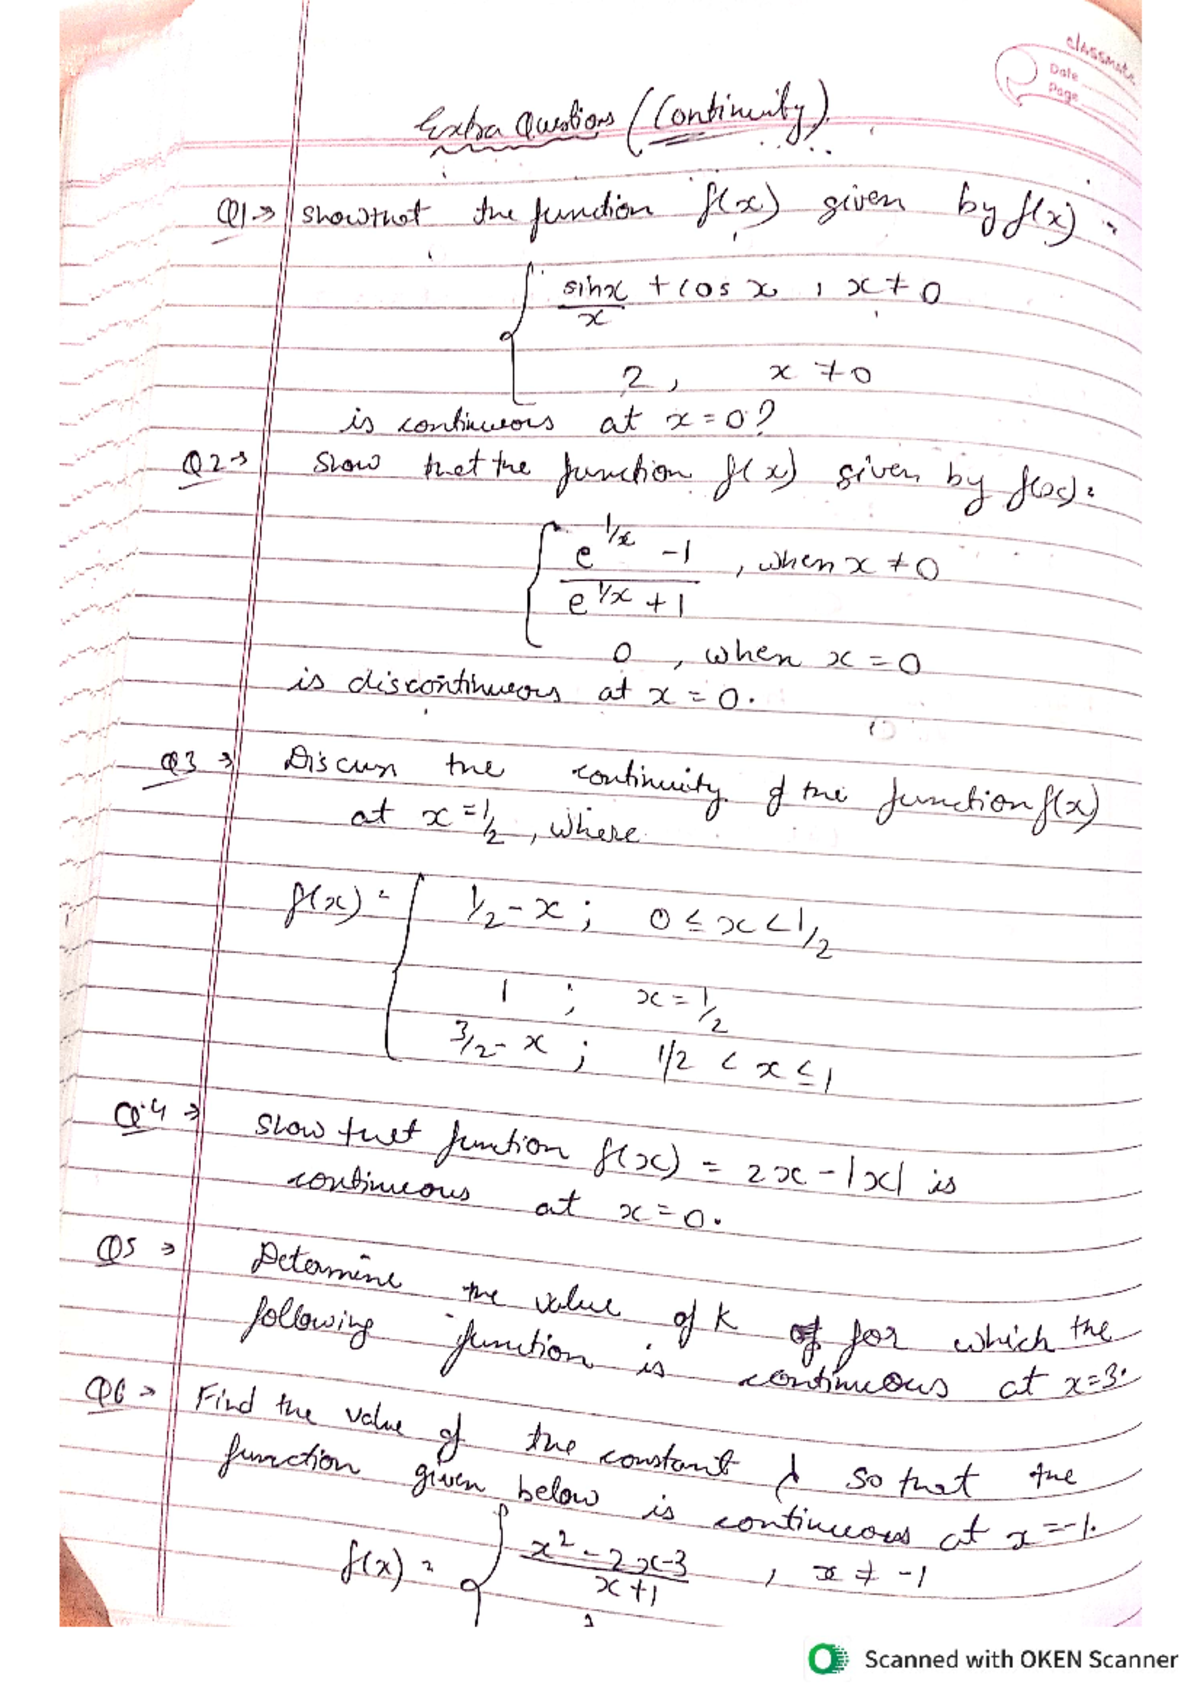 classmate
Date
Page
Extra Questions (Continuity)
Q1→ Show that the function f(x) given by f(x) =
sinx/x + cos x , x ≠ 0
2 , x ≠ 0
is continuous at x = 0?
Q2→ Show that the function f(x) given by f(x) =
e^1/x - 1 / e^1/x + 1 , when x ≠ 0
0 , when x = 0
is discontinuous at x = 0.
Q3→ Discuss the continuity of the function f(x)
at x = 1/2 , where
f(x) = 1/2 - x ; 0 ≤ x < 1/2
1 ; x = 1/2
3/2 - x ; 1/2 < x ≤ 1
Q.4→ Show that function f(x) = 2x - |x| is
continuous at x = 0.
Q5→ Determine the value of K for which the
following function is continuous at x=3.
Q6→ Find the value of the constant λ so that the
function given below is continuous at x = -1.
f(x) = x² - 2x - 3 / x + 1 , x ≠ -1
Scanned with OKEN Scanner